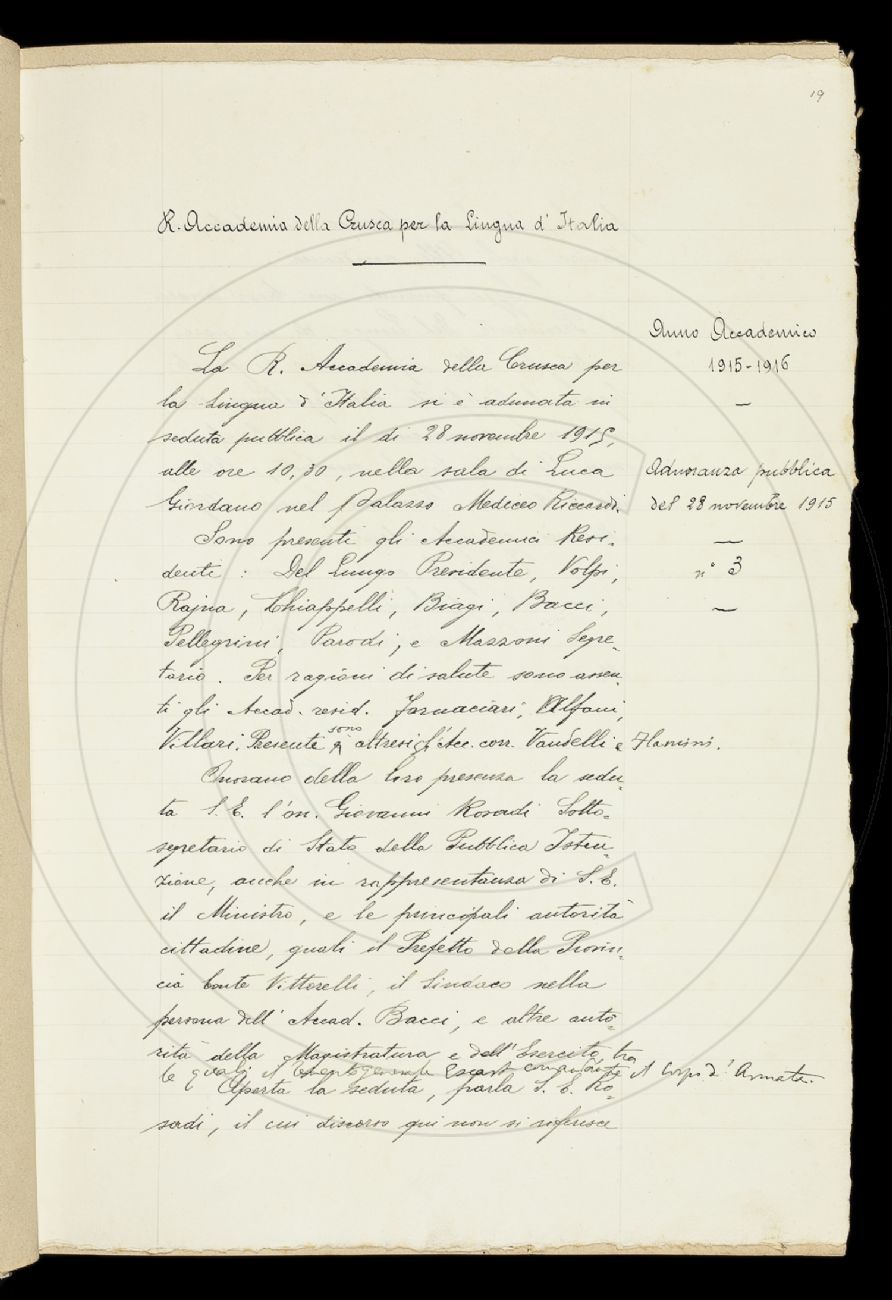 19
R. Accademia della Crusca per la Lingua d'Italia
Anno Accademico
1915-1916
Adunanza pubblica
del 28 novembre 1915
n° 3
La R. Accademia della Crusca per
la Lingua d'Italia si è adunata in
seduta pubblica il dì 28 novembre 1915,
alle ore 10,30, nella sala di Luca
Giordano nel Palazzo Mediceo Riccardi.
Sono presenti gli Accademici Resi-
denti: Del Lungo Presidente, Volpi,
Rajna, Chiappelli, Biagi, Bacci,
Pellegrini, Parodi, e Mazzoni Segre-
tario. Per ragioni di salute sono assen-
ti gli Accad. resid. Fornaciari, Alfani,
Villari. Presente sono altresì gl'Acc. corr. Vandelli e Flamini.
Onorano della loro presenza la sedu-
ta S. E. l'on. Giovanni Rosadi Sotto-
segretario di Stato della Pubblica Istru-
zione, anche in rappresentanza di S. E.
il Ministro, e le principali autorità
cittadine, quali il Prefetto della Provin-
cia Conte Vittorelli, il Sindaco nella
persona dell'Accad. Bacci, e altre auto-
rità della Magistratura e dell'Esercito, tra
le quali il comandante il Corpo d'Armata.
Aperta la seduta, parla S. E. Ro-
sadi, il cui discorso qui non si riferisce